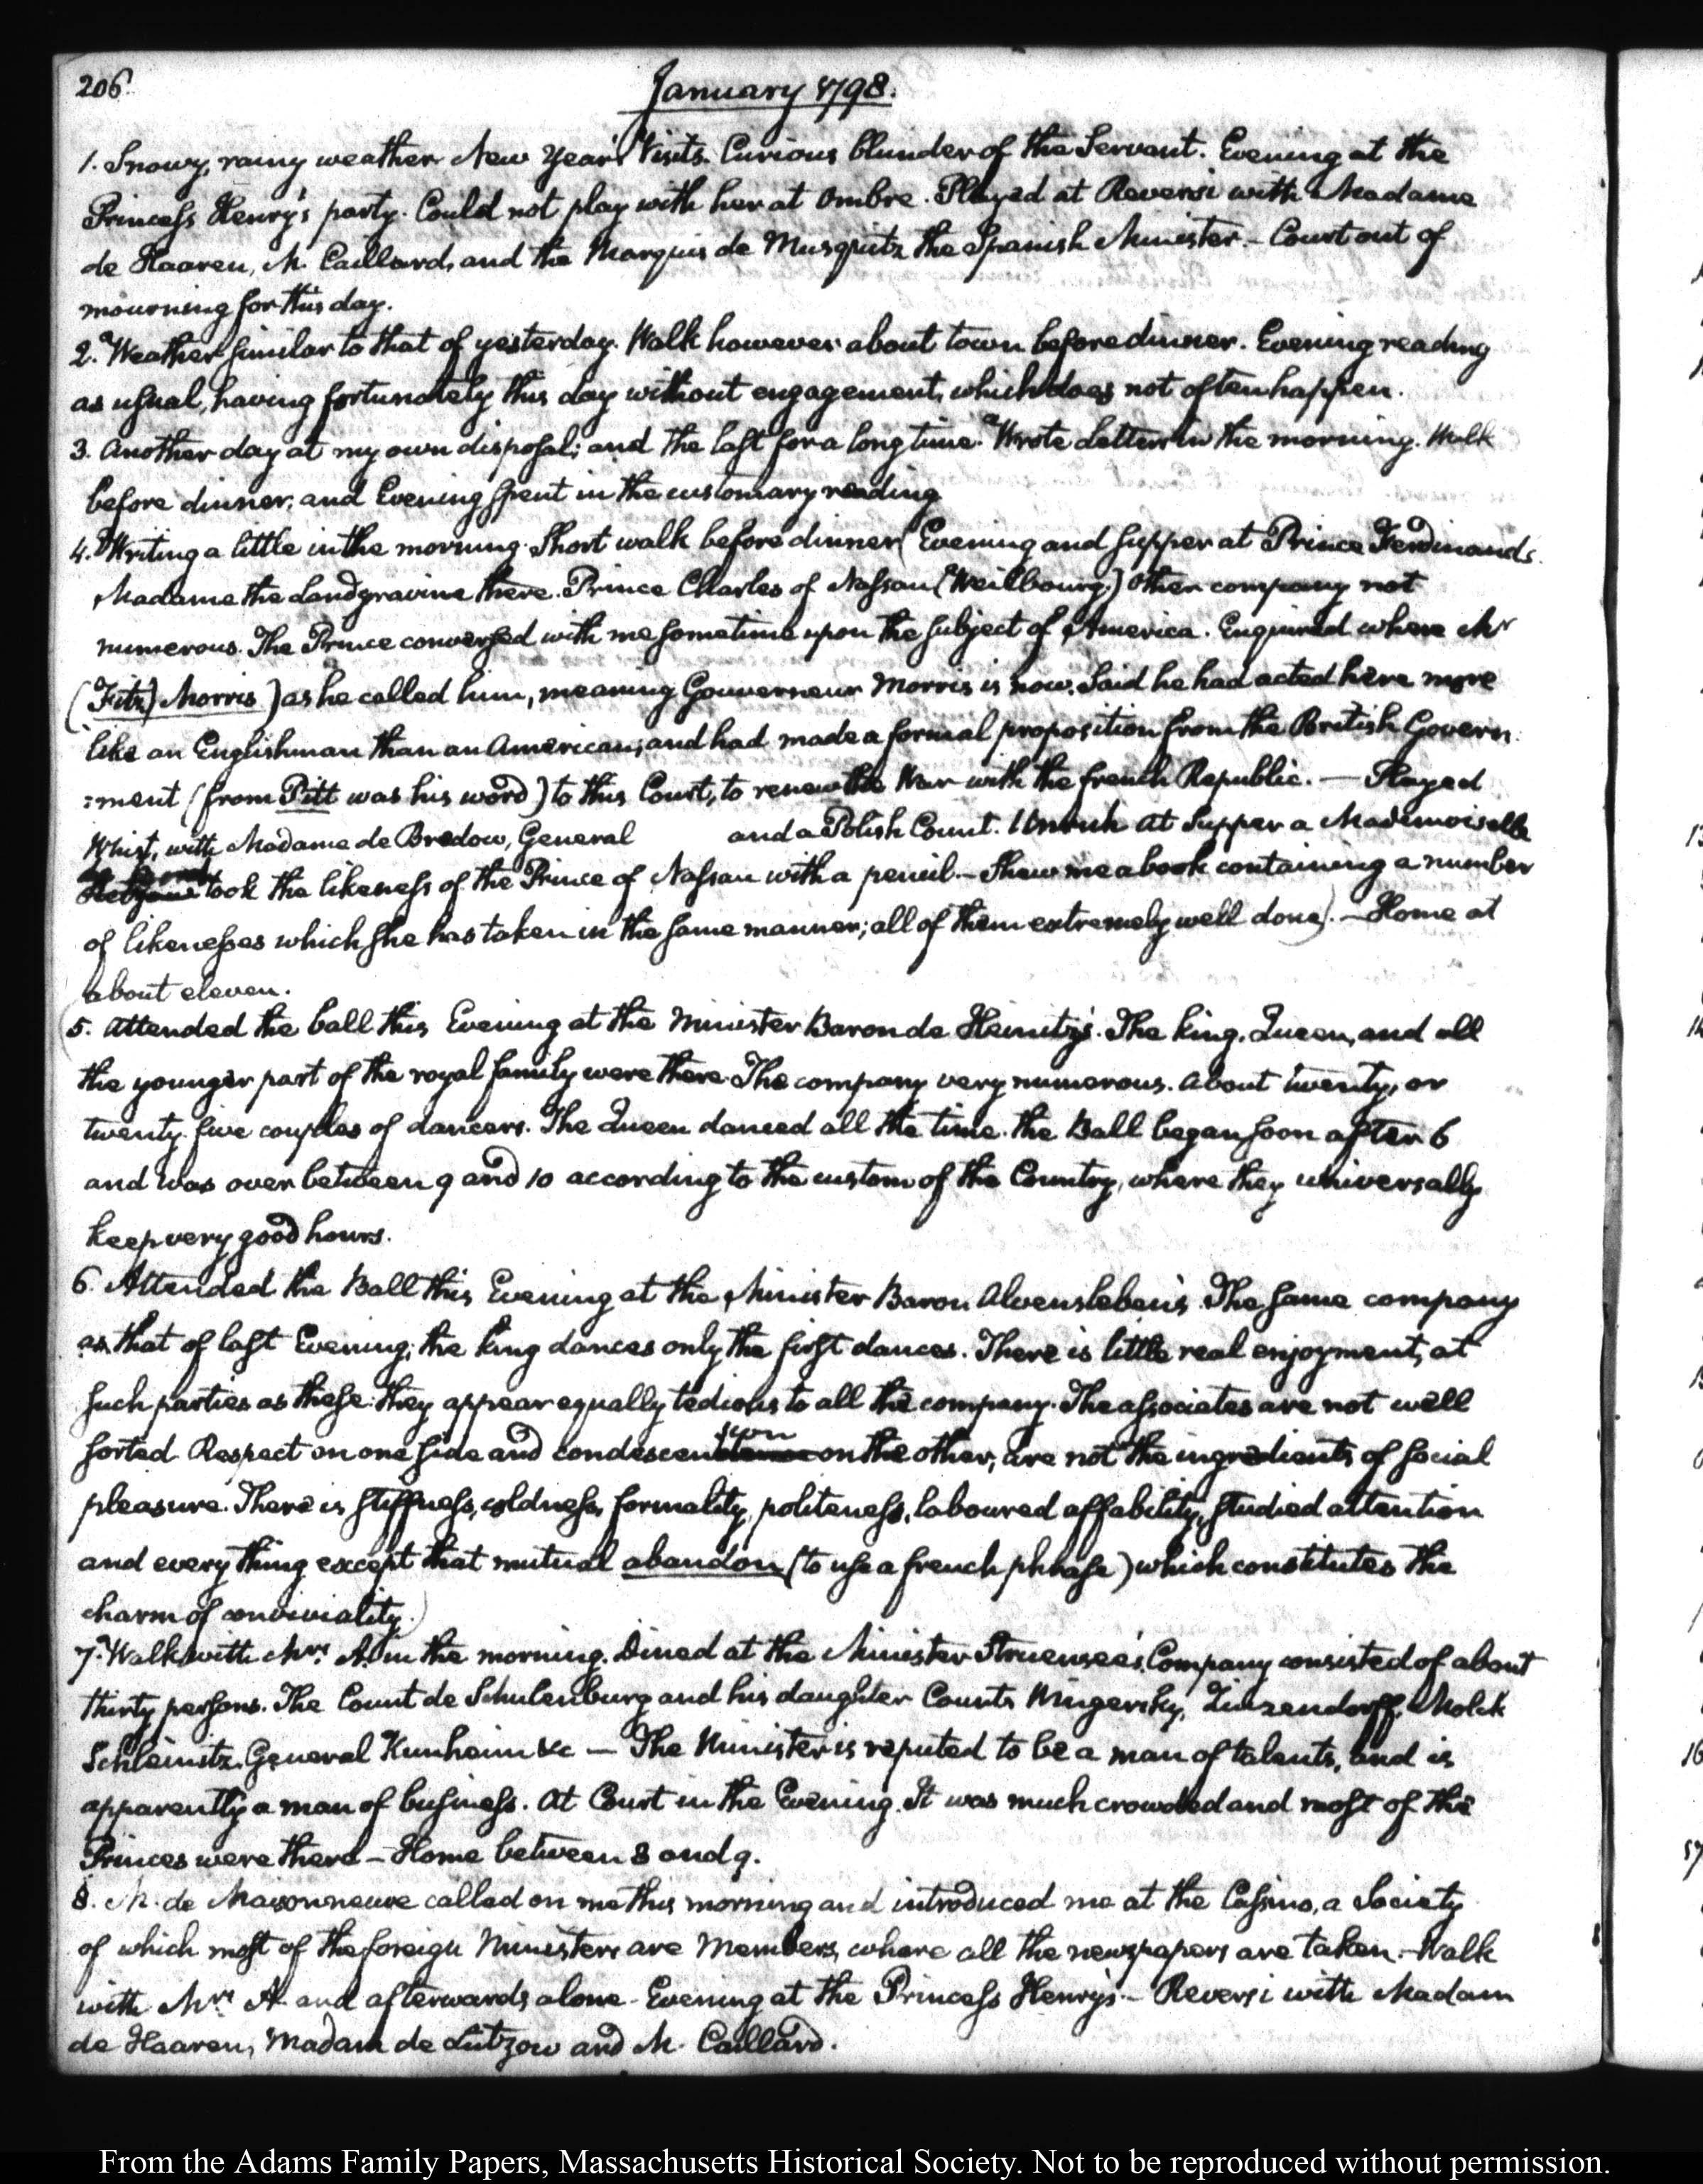 206.
January 1798.
1. Snowy, rainy weather New Year's Visits. Curious blunder of the Servant. Evening at the
Princess Henry's party. Could not play with her at Ombre. Played at Reversi with Madame
de Haaren, M. Caillard, and the Marquis de Musquitz the Spanish Minister. – Court out of
mourning for this day.
2. Weather similar to that of yesterday. Walk however about town before dinner. Evening reading
as usual, having fortunately this day without engagement, which does not often happen.
3. Another day at my own disposal; and the last for a long time. Wrote letters in the morning. Walk
before dinner, and Evening spent in the customary reading
4. Writing a little in the morning. Short walk before dinner (Evening and supper at Prince Ferdinand's.
Madame the Landgravine there. Prince Charles of Nassau (Weilbourg.) Other company not
numerous. The Prince conversed with me sometime upon the subject of America. Enquired where Mr
(Fitz) Morris) as he called him, meaning Gouverneur Morris is now. Said he had acted here more
like an Englishman than an American; and had made a formal proposition from the British Govern
:ment (from Pitt was his word) to this Court, to renew the War with the french Republic. — Played
Whist, with Madame de Bredow, General and a Polish Count. Unruh At Supper a Mademoiselle
took the likeness of the Prince of Nassau with a pencil. – Shew me a book containing a number
of likenesses which she has taken in the same manner; all of them extremely well done). – Home at
about eleven.
5. Attended the ball this Evening at the Minister Baron de Heinitz's. The king, Queen, and all
the younger part of the royal family were there. The company very numerous. About twenty, or
twenty five couples of dancers. The Queen danced all the time. the Ball began soon after 6
and was over between 9 and 10 according to the custom of the Country, where they universally
keep very good hours.
6. Attended the Ball this Evening at the Minister Baron Alvensleben's. The same company
as that of last Evening; the king dances only the first dances. There is little real enjoyment, at
such parties as these: they appear equally tedious to all the company. The associates are not well
sorted. Respect on one side and condescension on the other, are not the ingredients of social
pleasure. There is stiffness, coldness, formality, politeness, laboured affability, studied attention
and every thing except that mutual abandon (to use a french phrase) which constitutes the
charm of conviviality.)
7. Walk with Mrs. A. in the morning. Dined at the Minister Struensee's. Company consisted of about
thirty persons. The Count de Schulenburg and his daughter Counts Wingersky, Zinzendorff, Molck
Schleinitz, General Kunheim &c — The Minister is reputed to be a man of talents, and is
apparently a man of business. At Court in the Evening. It was much crowded and most of the
Princes were there – Home between 8 and 9.
8. M. de Maisonneuve called on me this morning and introduced me at the Cassino, a Society
of which most of the foreign Ministers are Members, where all the newspapers are taken. – Walk
with Mrs. A. and afterwards alone – Evening at the Princess Henry's. – Reversi with Madam
de Haaren, Madam de Lutzow and M. Caillard.
From the Adams Family Papers, Massachusetts Historical Society. Not to be reproduced without permission.